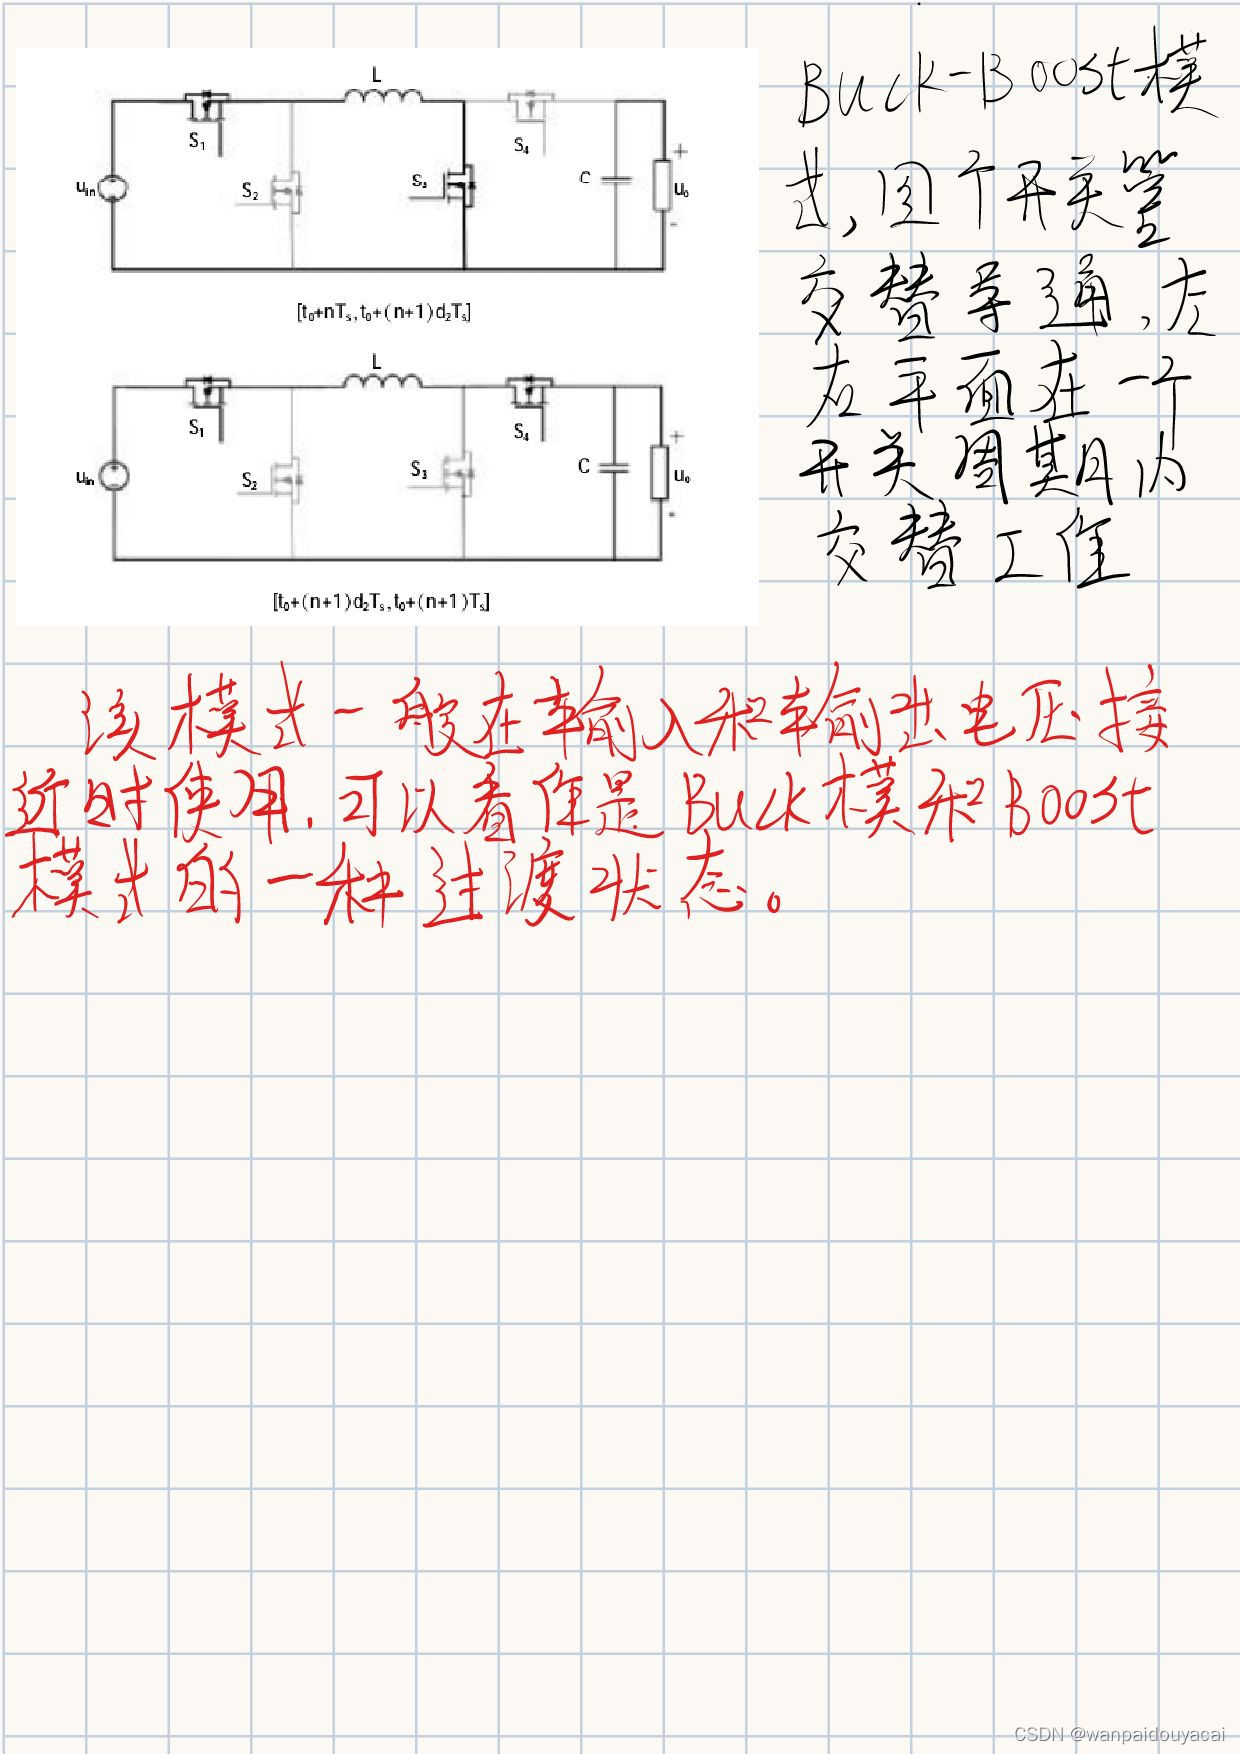 L
S₁
S₄
S₂
S₃
uᵢₙ
C
+
u₀
-
[t₀+nTₛ,t₀+(n+1)d₂Tₛ]
L
S₁
S₄
S₂
S₃
uᵢₙ
C
+
u₀
-
[t₀+(n+1)d₂Tₛ,t₀+(n+1)Tₛ]
Buck-Boost模
式,四个开关管
交替导通,左
右平面在一个
开关周期内
交替工作
该模式一般在输入和输出电压接
近时使用.可以看作是Buck模和Boost
模式的一种过渡状态。
CSDN @wanpaidouyacai